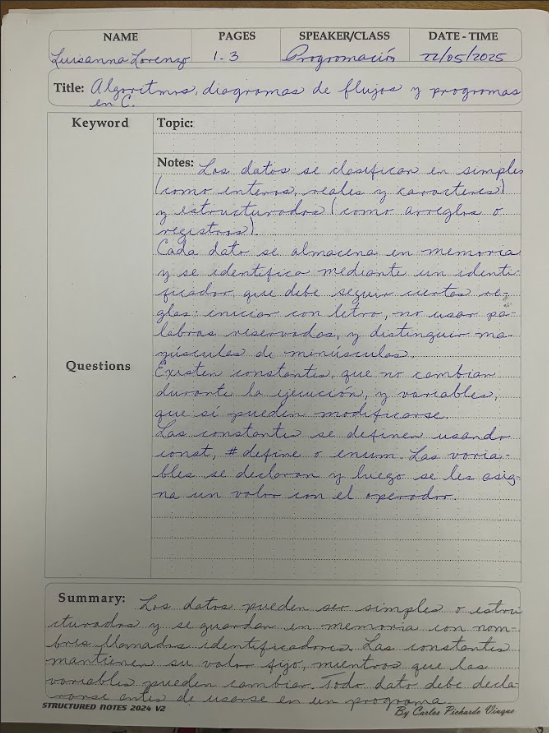 NAME PAGES SPEAKER/CLASS DATE - TIME
Luisanna Lorenzo 1.3 Programación 22/05/2025
Title: Algoritmos, diagramas de flujos y programas
en C.
Keyword Topic:
Notes: Los datos se clasifican en simples
(como enteros, reales y caracteres)
y estructurados (como arreglos o
registros).
Cada dato se almacena en memoria
y se identifica mediante un identi-
ficador, que debe seguir ciertas re-
glas: iniciar con letra, no usar pa-
labras reservadas, y distinguir ma-
yúsculas de minúsculas.
Questions
Existen constantes, que no cambian
durante la ejecución, y variables,
que sí pueden modificarse.
Las constantes se definen usando
const, #define o enum. Las varia-
bles se declaran y luego se les asig-
na un valor con el operador.
Summary: Los datos pueden ser simples o estru
cturados y se guardan en memoria con nom-
bres llamados identificadores. Las constantes
mantienen su valor fijo, mientras que las
variables pueden cambiar. Todo dato debe decla-
rarse antes de usarse en un programa.
STRUCTURED NOTES 2024 V2 By Carlos Pichardo Viuque